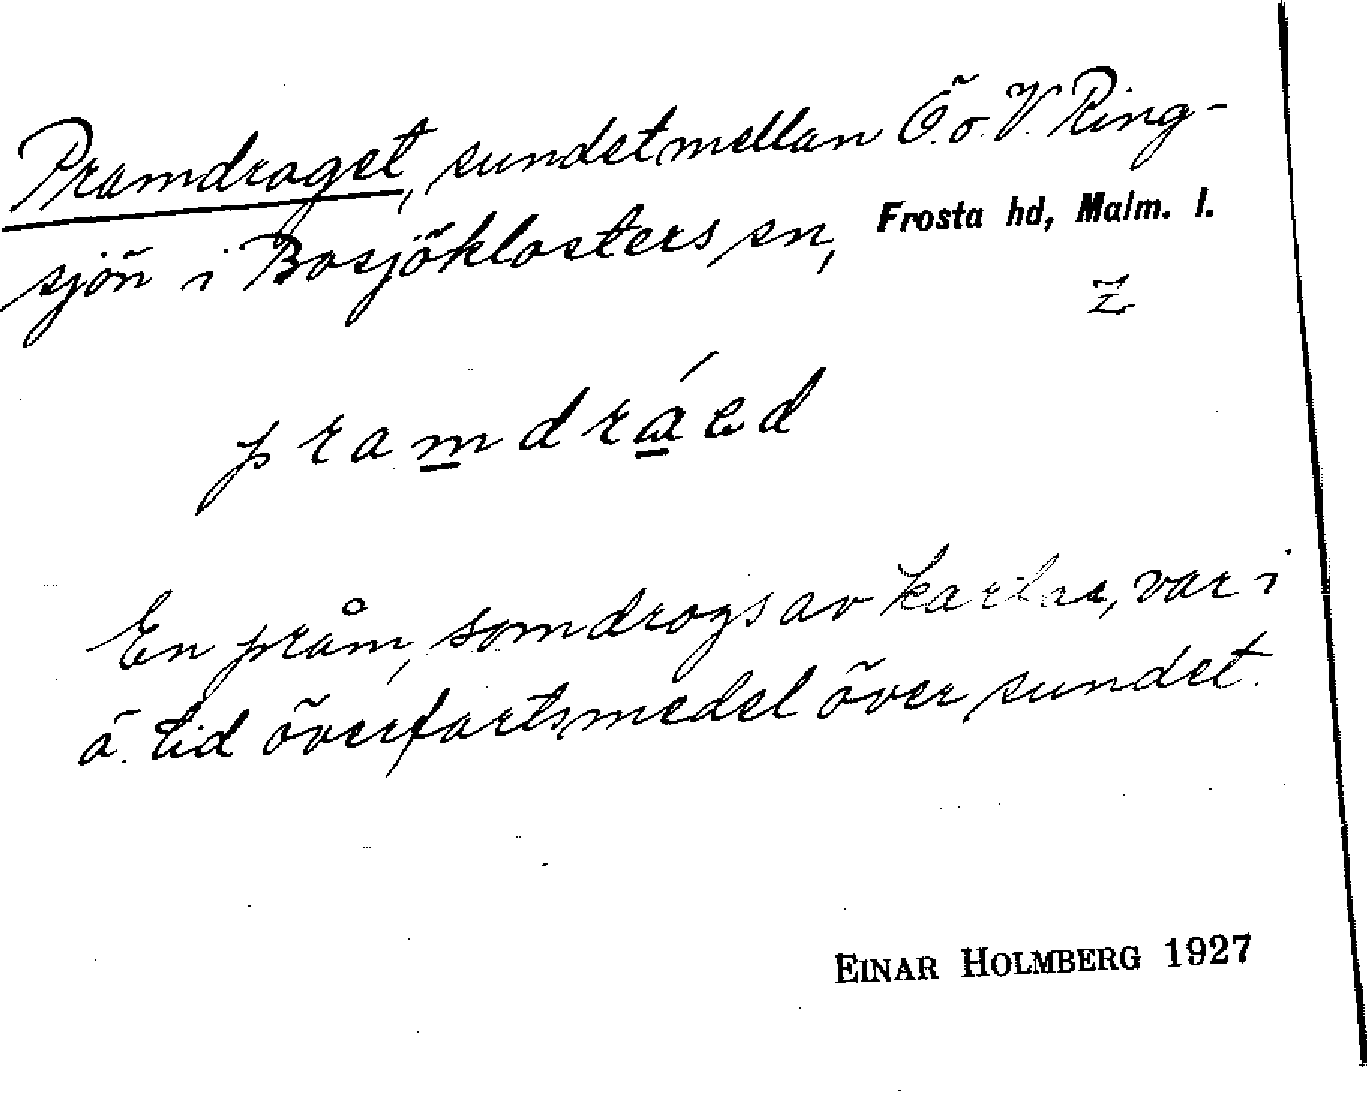 Pramdraget, sundet mellan Ö. o. V. Ring-
sjön i Bosjöklosters sn,
Frosta hd, Malm. l.
Z
En pråm, som drogs av karlar, var i
ä. tid överfartsmedel över sundet.
EINAR HOLMBERG 1927